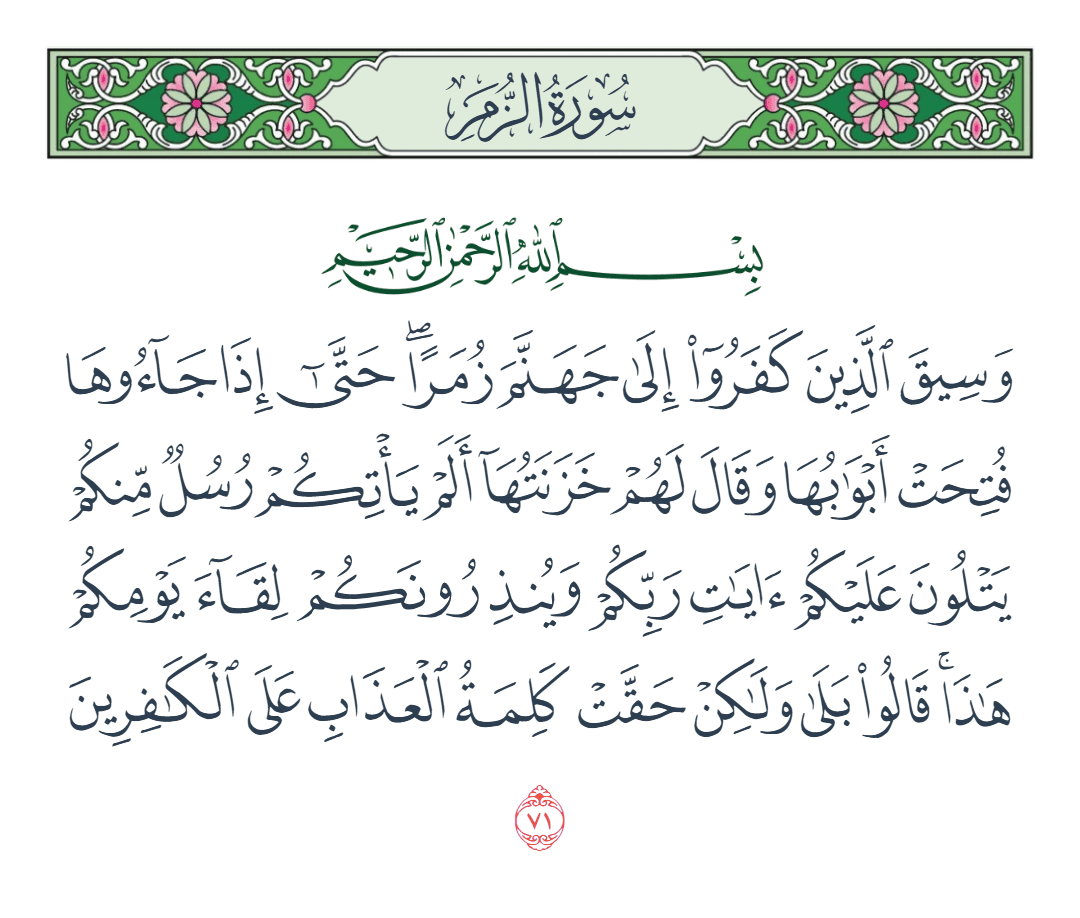 سُورَةُ الزُّمَرِ
بِسْمِ ٱللَّهِ ٱلرَّحْمَٰنِ ٱلرَّحِيمِ
وَسِيقَ ٱلَّذِينَ كَفَرُوٓا۟ إِلَىٰ جَهَنَّمَ زُمَرًاۖ حَتَّىٰٓ إِذَا جَآءُوهَا
فُتِحَتْ أَبْوَٰبُهَا وَقَالَ لَهُمْ خَزَنَتُهَآ أَلَمْ يَأْتِكُمْ رُسُلٌ مِّنكُمْ
يَتْلُونَ عَلَيْكُمْ ءَايَٰتِ رَبِّكُمْ وَيُنذِرُونَكُمْ لِقَآءَ يَوْمِكُمْ
هَٰذَاۚ قَالُوا۟ بَلَىٰ وَلَٰكِنْ حَقَّتْ كَلِمَةُ ٱلْعَذَابِ عَلَى ٱلْكَٰفِرِينَ
٧١